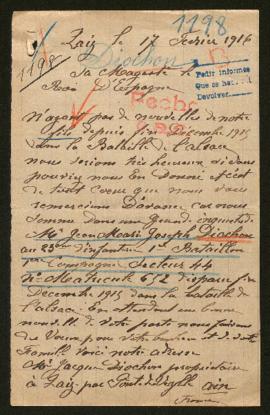 1198
Laiz le 17 Fevrier 1916
Diochon
1198
Sa Majesté le
Roi d'Espagne
Pedir informes
Devolver
Hecho
N'ayant pas de nouvelles de notre
fils depuis fin Décembre 1915
dans la Bataille de l'alsace
nous serions très heureux si vous
pouviez nous En donné et c'est
de tout coeur que nous vous
remercions Davance car nous
somme dans une grande inquietude
Mr Jean Marie Joseph Diochon
au 23eme d'infanterie 1er Bataillon
Compagnie Secteur 44
No Matricule 652 disparu fin
Decembre 1915 dans la bataille de
l'alsace. En attendant une bonne
nouvelle de votre part nous faisons
de Voeux pour votre bonheur et de votre
Famille Voici notre adresse
Mr Jacques Diochon propriétaire
à Laiz par Pont de Veyle ain
France